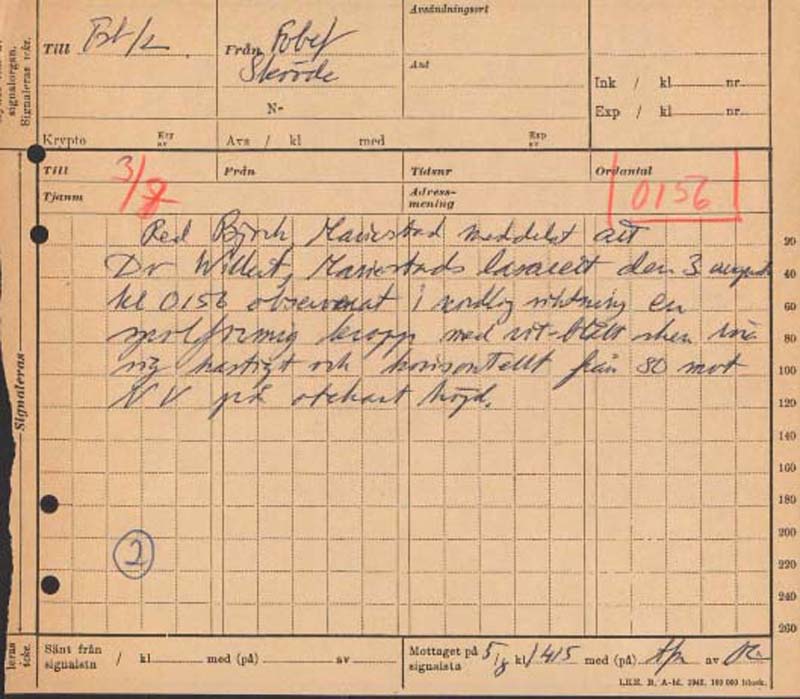 Avsändningsort
Till Fst/L
Från Fobef
Skövde
Ant
Ink / kl nr
N-
Exp / kl nr
Krypto
Kry
nr
Avs / kl med
Exp
nr
signalorgan.
Signaleras icke.
Till
Från
Tidsnr
Ordantal
3/8
0156
Tjanm
Adress-
mening
Red Björk Mariestad meddelat att
Dr Willert, Mariestads lasarett den 3 augusti
kl 0156 observerat i nordlig riktning en
spolformig kropp med vit-blått sken röra
sig hastigt och horisontellt från SO mot
NV på okänt höjd.
20
40
60
80
100
120
140
160
180
200
220
240
260
Signaleras
2
Sänt från
signalsta / kl med (på) av
Mottaget på
signalsta 5/8 kl 1415 med (på) av
icke.
I.K.K. B, A-bl. 1942. 100 000 block.